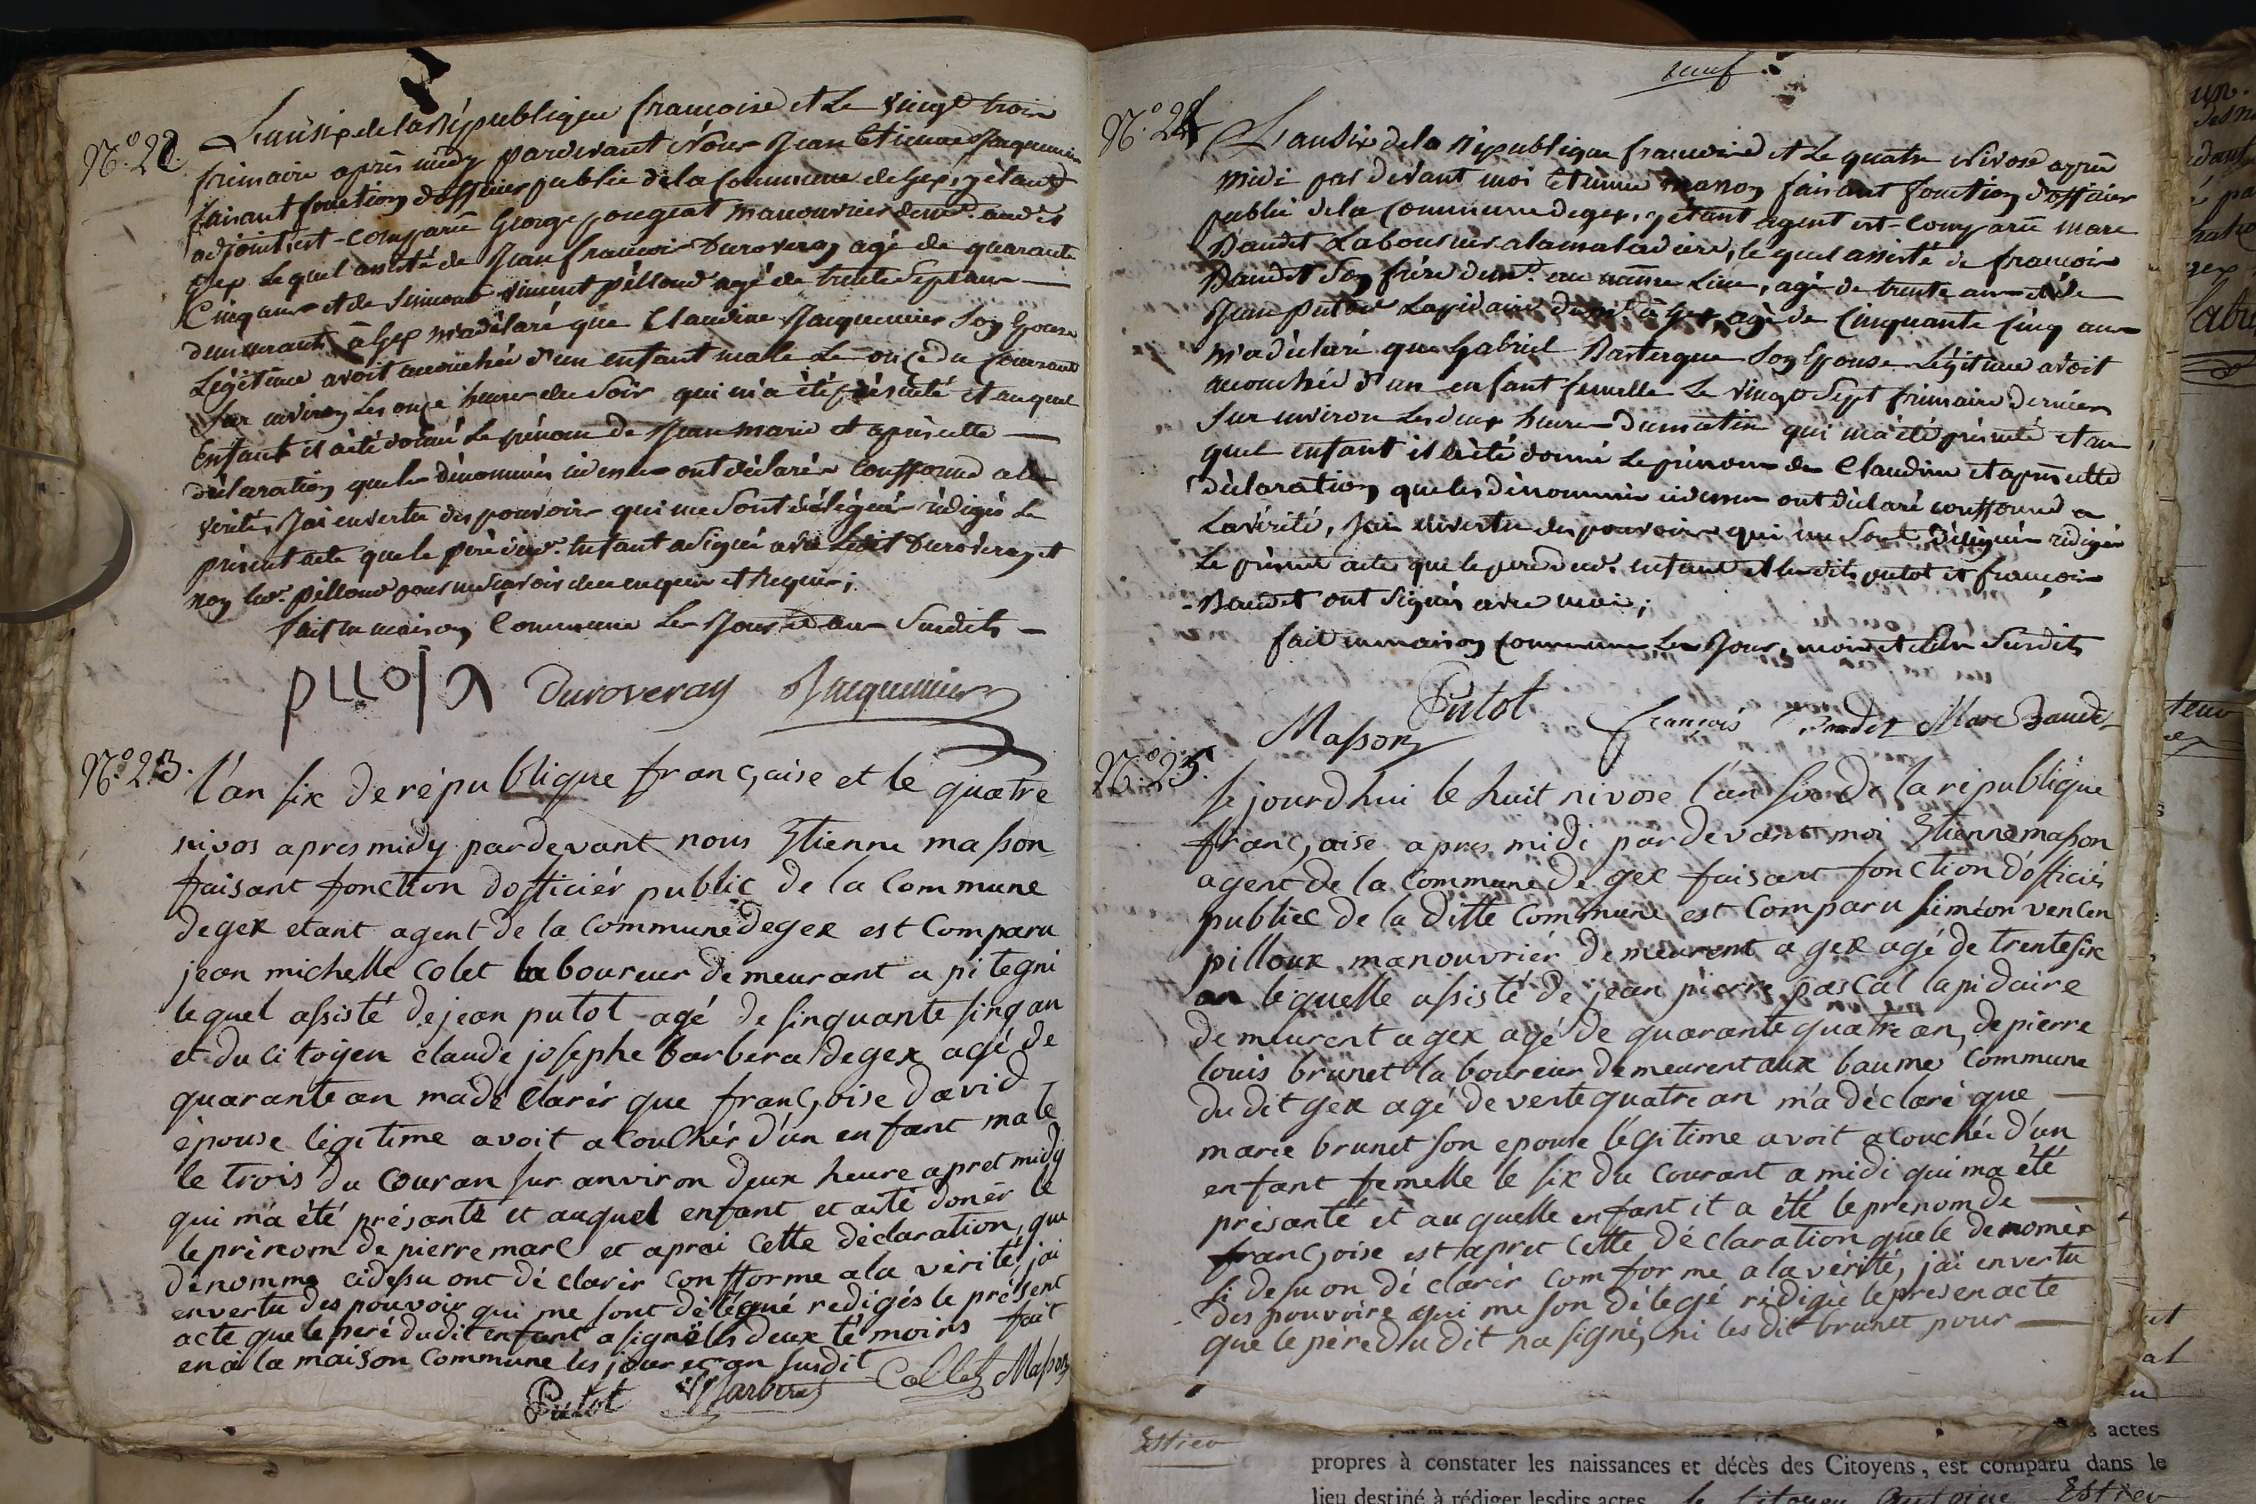 N.° 22.
L'an six de la République françoise et Le vingt trois
frimaire après midy pardevant Nous Jean Etienne Jaquemier
faisant fonction d'officier public de la Commune de Gex, y étant
adjoint est-comparu George pougeat manouvrier demt. audit
Gex Lequel assisté de Jean françois Duroveray agé de quarante
Cinq ans et de Simeond vincent pilloud agé de trente Sept ans
demeurants à Gex m'a déclaré que Claudine Jaquemier Son Epouse
Légitime avoit accouchée d'un enfant male Le onze du Courrant
Sur environ Les onze heures du Soir qui m'a été présenté et auquel
Enfant il a été donné Le prénom de Jean marie et après cette
déclaration que les dénommés ci dessus ont déclarés Conforme a la
vérité, J'ai en vertu des pouvoirs qui me Sont délégués rédigés Le
présent acte que le père dud. Enfant a Signé avec Ledit Duroveray et
non led. pilloud pour ne Savoir de ce enquis et Requis;
fait en maison Commune Les Jour et an Susdits
Duroveray Jaquemier
N.° 23.
l'an six de république franc,aise et le quatre
nivos apres midy pardevant nous Etienne masson
faisant fonction d'officiér public de la Commune
de gex etant agent de la Commune de gex est Comparu
jean michelle Colet laboureur demeurant a pitegni
lequel assisté de jean putot agé de sinquante sinq an
et du citoyen claude josephe barbera de gex agé de
quarante an ma dé Clarér que franc,oise david
épouse légitime avoit a Couchér d'un enfant male
le trois du Couran sur anviron deux heure apret midy
qui m'a été présanté et auquel enfant et aité donér le
le prénom de pierre marc et aprai Cette déclaration, que
dénomme cidessu ont dé clarir confforme a la vérité, j'ai
en vertu des pouvoir qui me sont délégué redigés le présent
acte que le peré dudit enfant a signé les deux témoins fait
en a la maison Commune les jour et an susdit
Putot Barberat Collet Masson
neuf
N.° 24
L'an Six de la République francoise et Le quatre nivose après
midi par devant moi Etienne masson faisant fonction d'officier
public de la Commune de gex, y étant agent est-comparu marc
Baudet Laboureur a la maladière, lequel assisté de francois
Baudet Son frère demt. au même Lieu, agé de trente ans et de
Jean putod Lapidaire demt. à Gex, agé de Cinquante Cinq ans
m'a déclaré que Gabriel Bastergue Son Epouse Légitime avoit
accouchée d'un enfant femelle Le vingt Sept frimaire dernier
Sur environ Les deux heures du matin qui m'a été présenté et au
quel enfant il a été donné Le prénom de Claudine et après cette
déclaration que les dénommés ci dessus ont déclaré confforme a
La vérité, J'ai en vertu des pouvoirs qui me Sont délégués rédigés
Le présent acte que le père dud. enfant et lesdits putot et françois
Baudet ont Signés avec moi;
fait en maison Commune Les Jour, mois et an Susdits
Putot
Masson françois Baudet Marc Baudet
N.° 25.
ce jourd'hui le huit nivose l'an six de la république
franc,aise apres midi pardevant moi Etienne masson
agent de la Commune de gex faisant fonction d'officiér
publiec de la ditte Commune est Comparu siméon vencen
pilloux manouvriér demeurent a gex agé de trente six
an lequelle assisté de jean pierre pascal lapidaire
demeurent a gex agé de quarante quatre an, de pierre
louis brunet laboureur demeurent aux baume Commune
du dit gex agé de vente quatre an m'a déclaré que
marie brunet son epouse légitime avoit acouchée d'un
enfant femelle le six du Courant a midi qui ma été
présanté et au quelle enfant it a été le prenom de
franc,oise est apret Cette déclaration que le denomér
si desu on dé clarér comforme a la vérité, j'ai en vertu
des pouvoire qui me son délegé rédigié le presen acte
que le pére du dit na signé, ni les dit brunet pour
s actes
propres à constater les naissances et décès des Citoyens, est comparu dans le
lieu destiné à rédiger lesdits actes le Citoyen